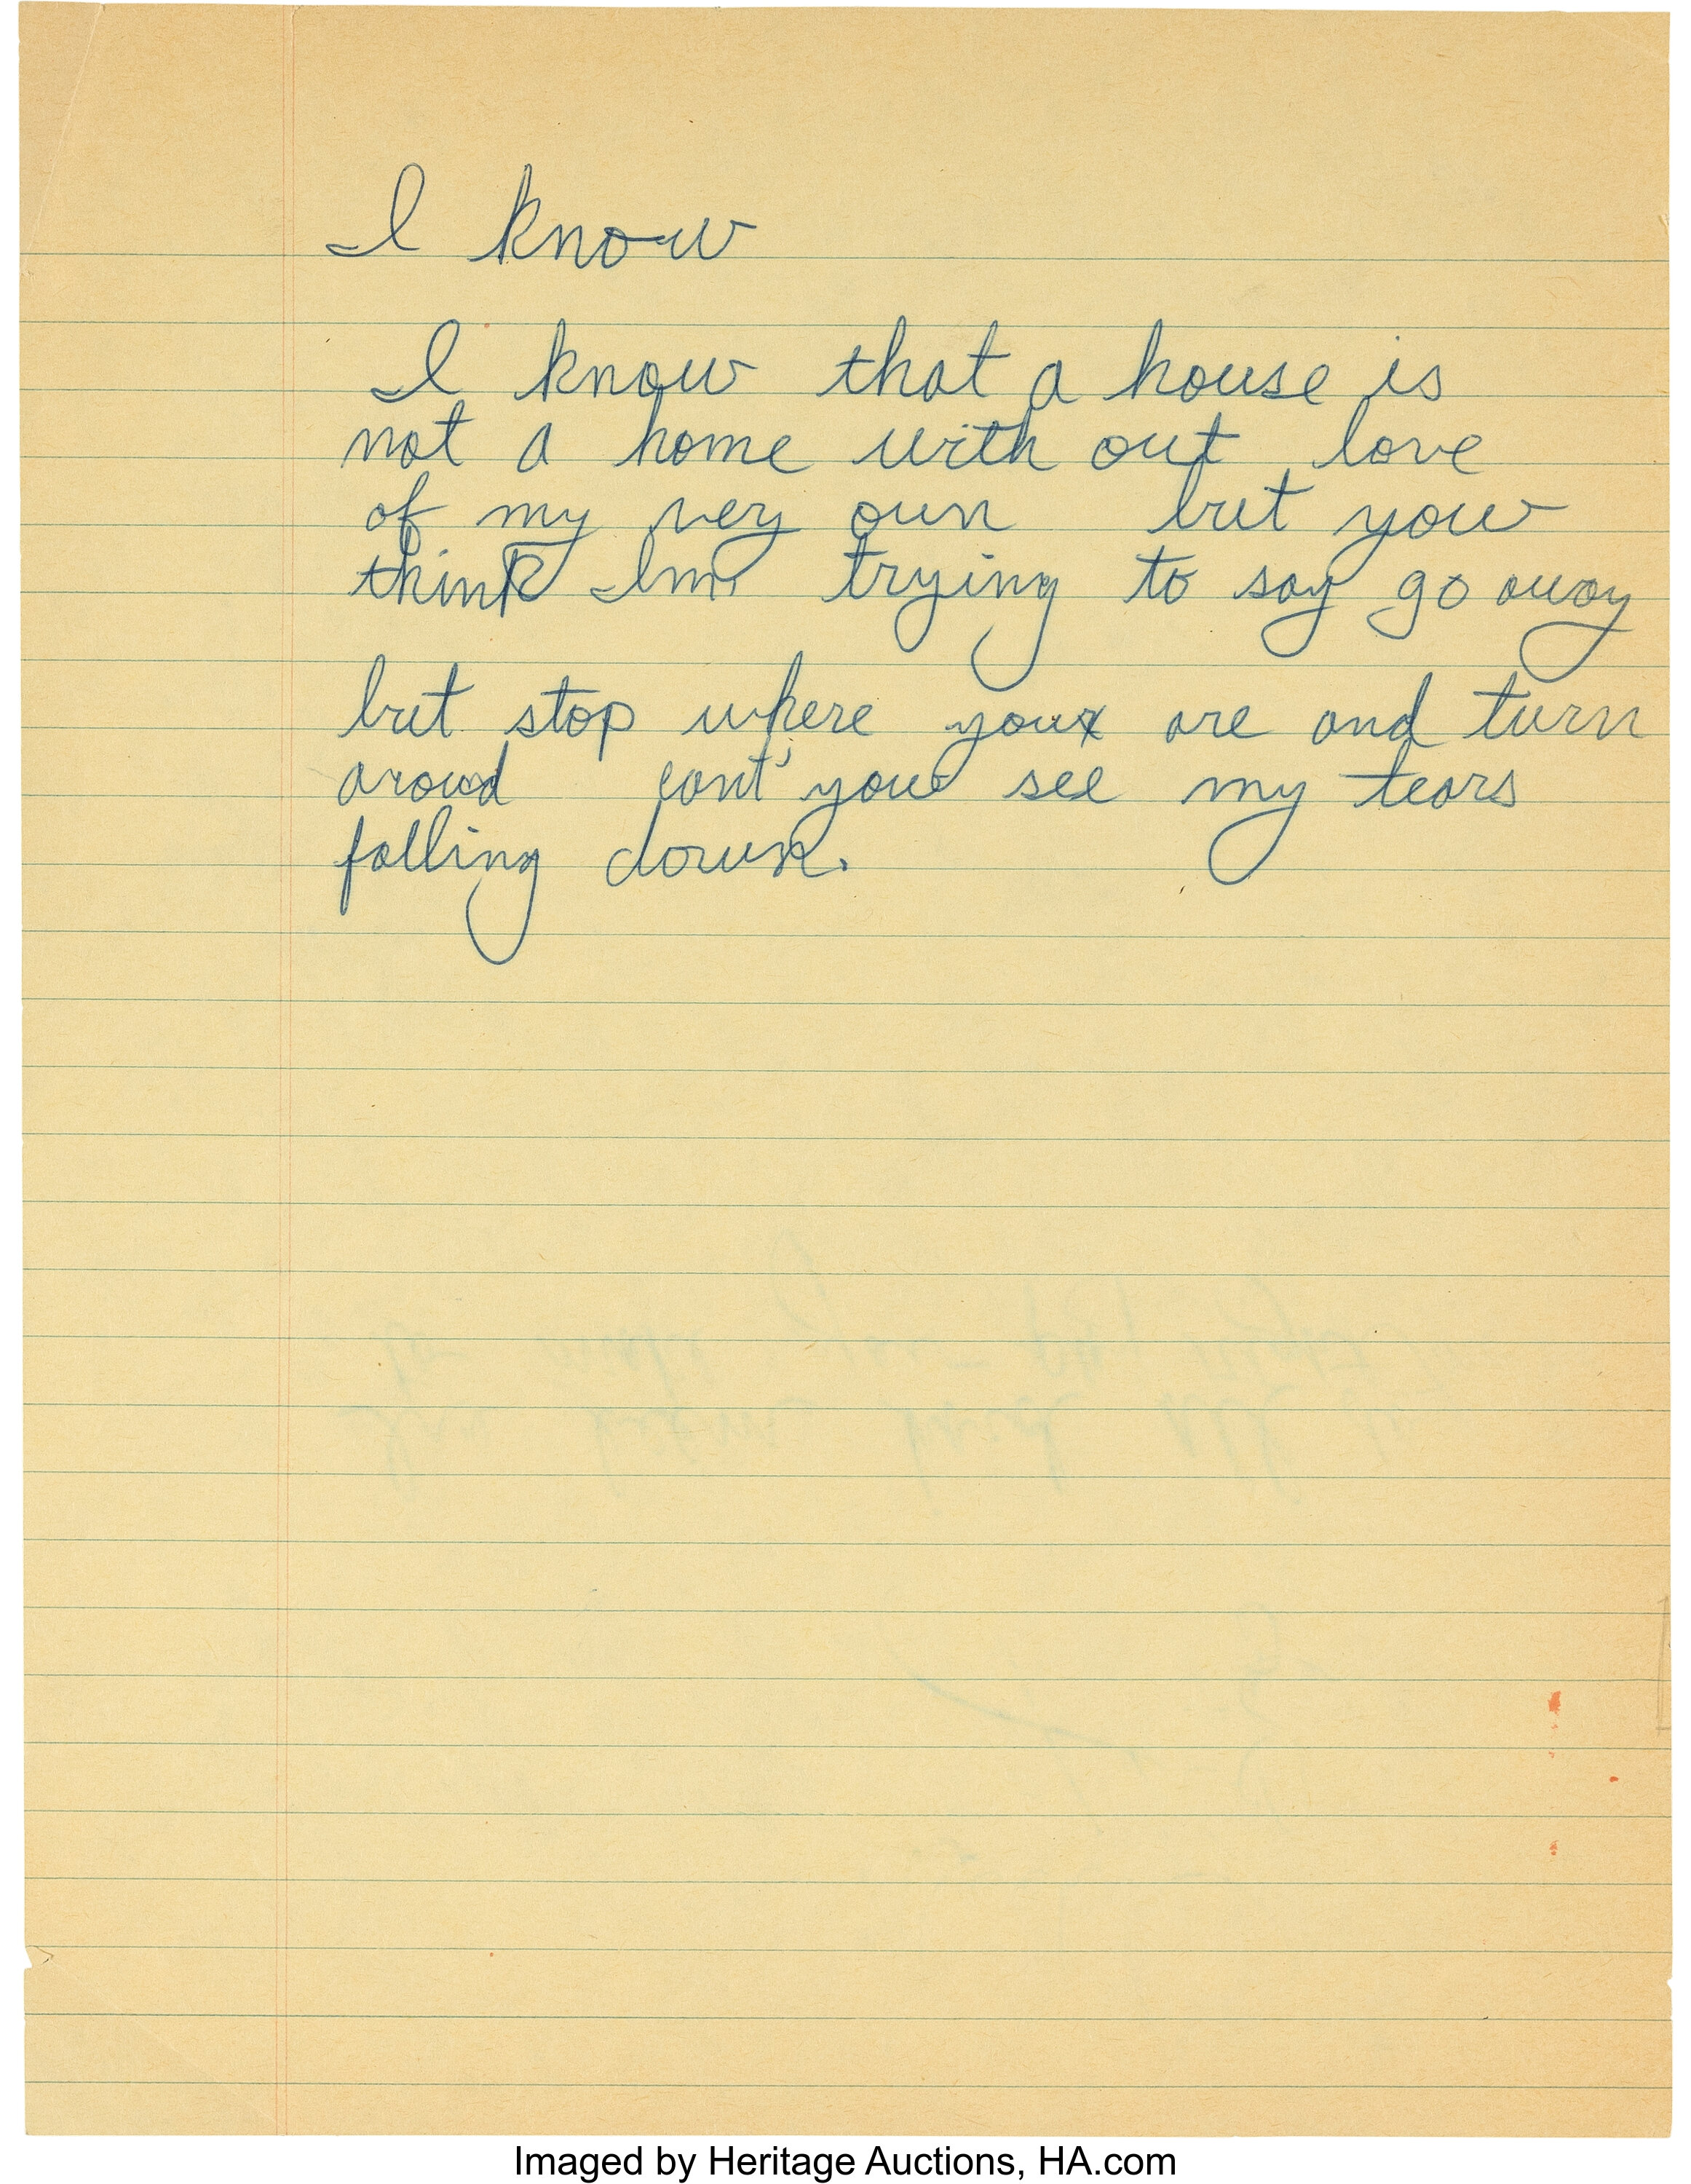 I know
I know that a house is
not a home with out love
of my very own but you
think Im trying to say go away
but stop where your are and turn
aroud cant' you see my tears
falling down.
Imaged by Heritage Auctions, HA.com